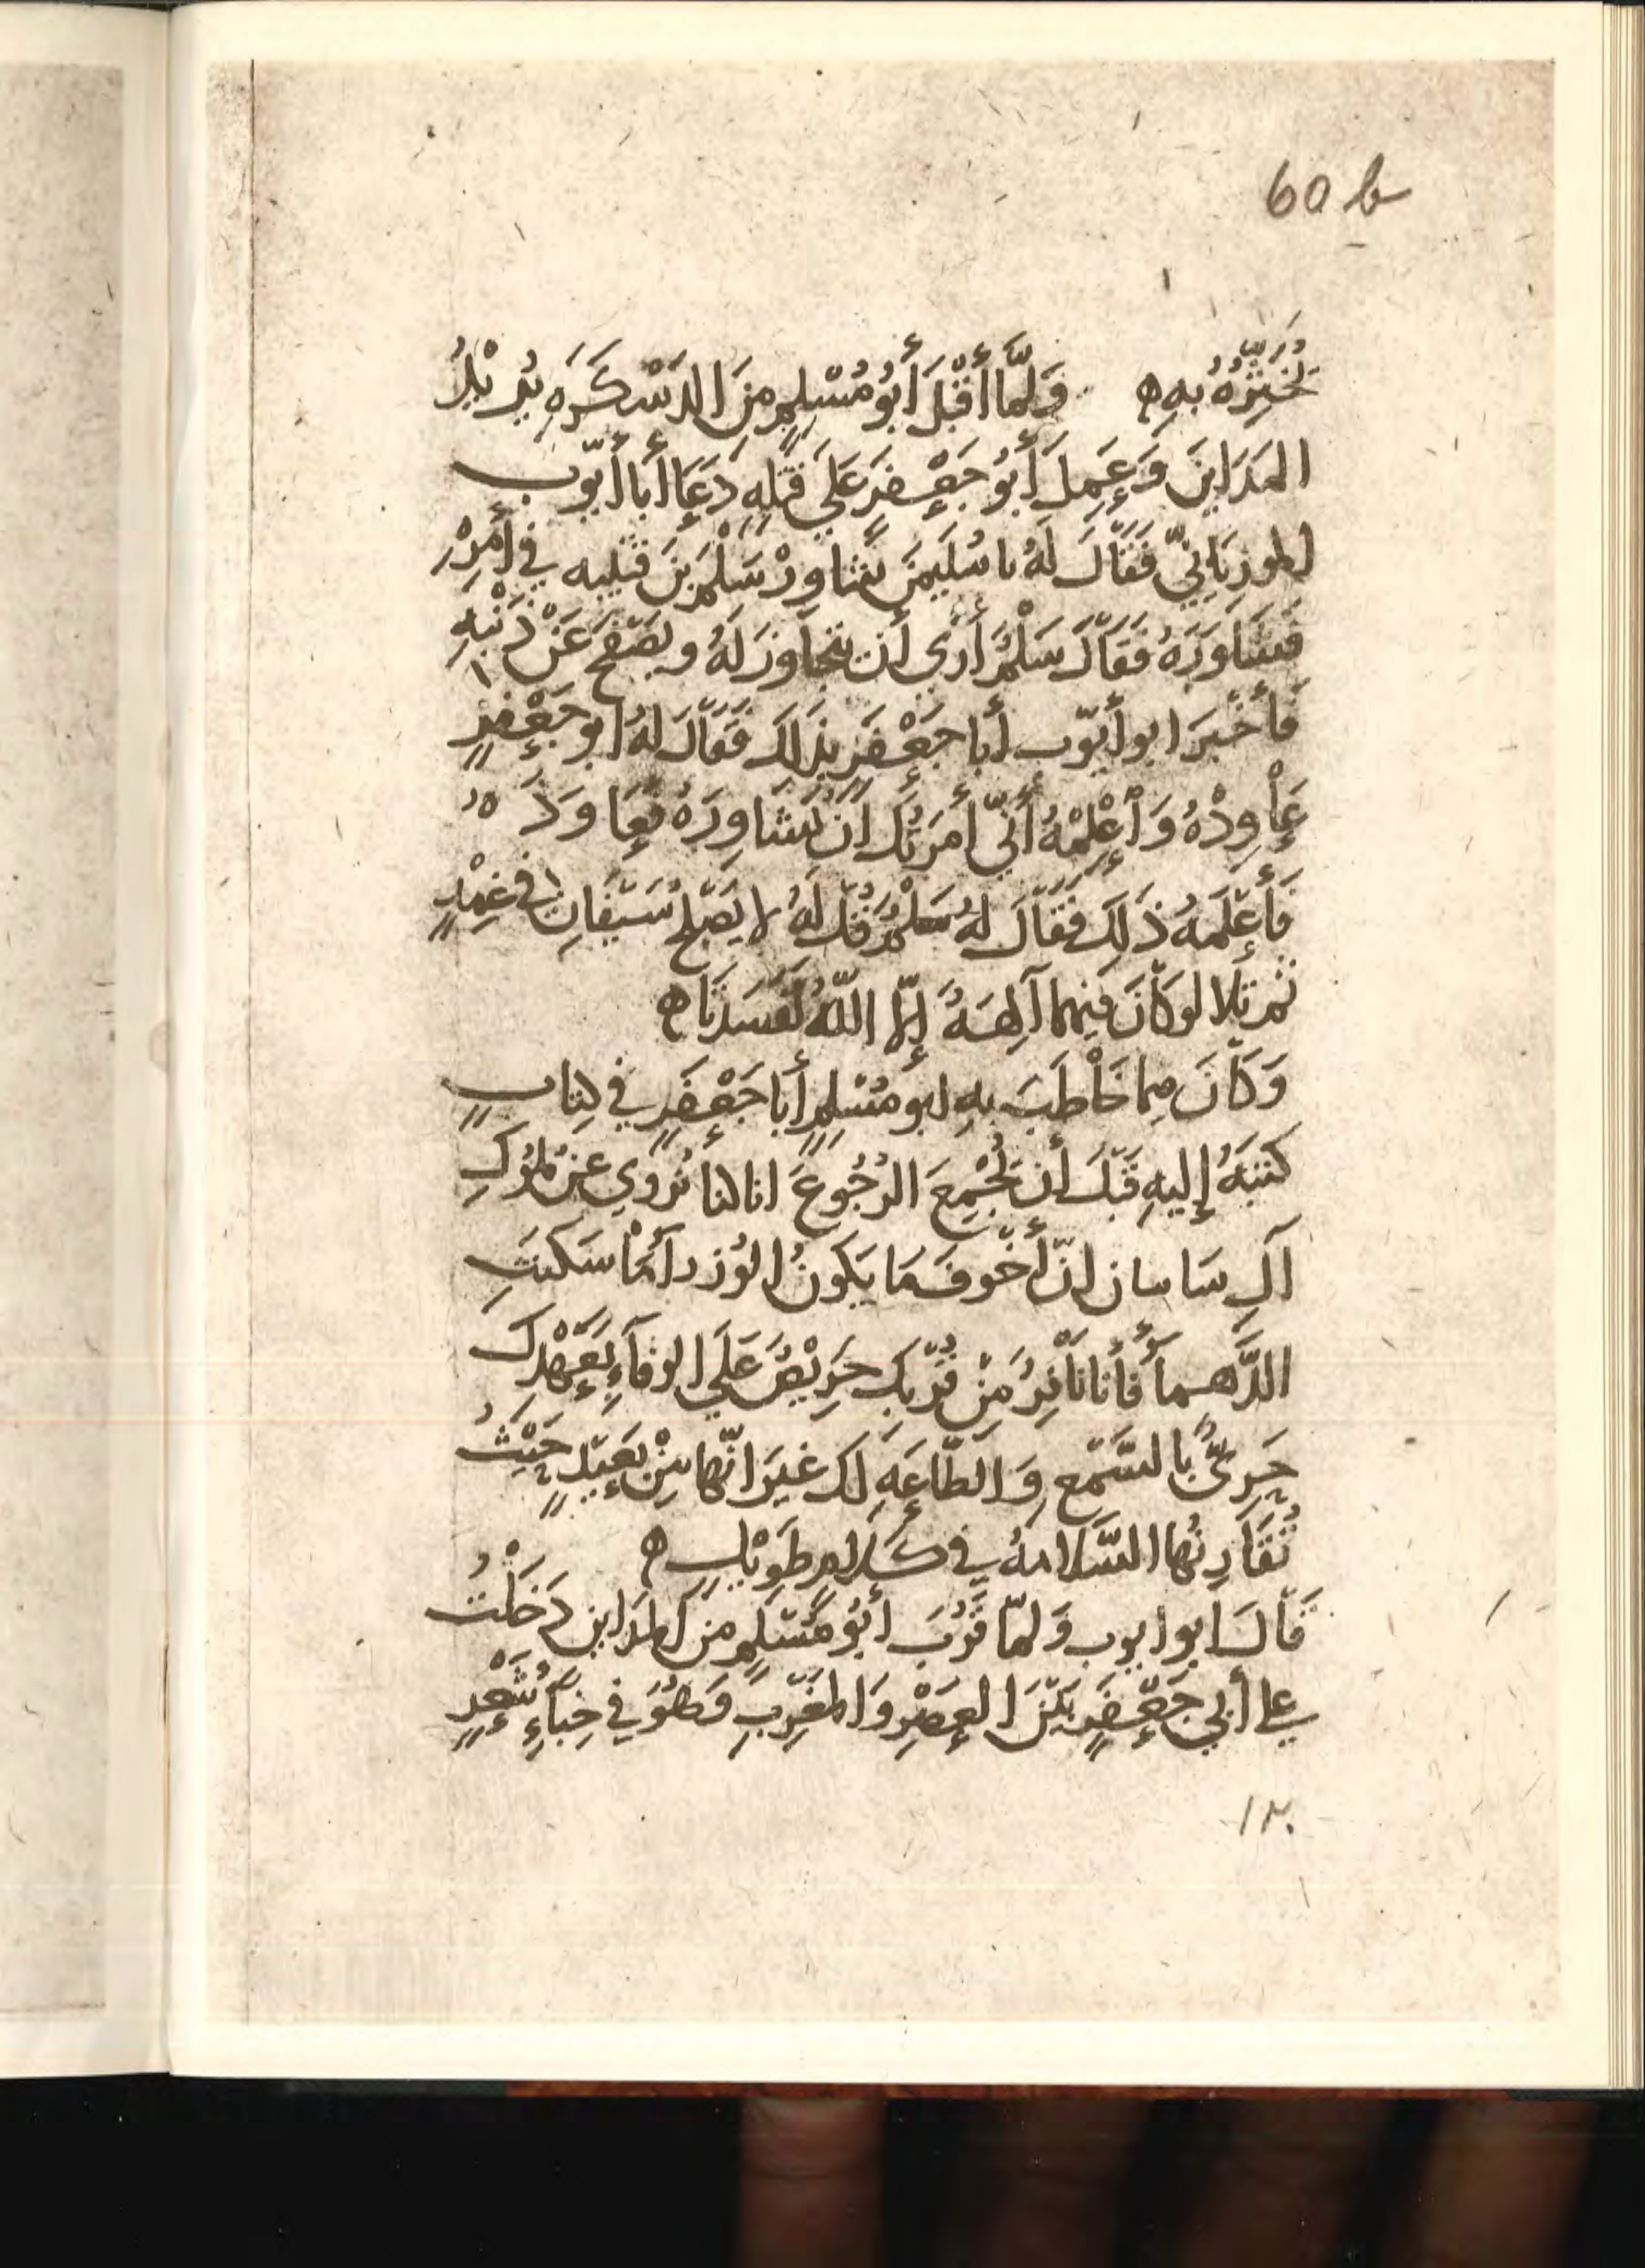 60 b
يُخَبِّرُهُ بِهِ ه وَلَمَّا أَقْبَلَ أَبُو مُسْلِمٍ مِنَ الدَسْكَرَهِ يُرِيْدُ
المَدَاينَ وَعَمِلَ أَبُو جَعْفَرَ عَلَي قَتْلِهِ دَعَا أَبا أَيّوب
الموريَانِيّ فَقَالَ لَهُ يا سُلَيمنَ شاوِرْ سَلْمَ بنَ قتيبه في أَمْرِهِ
فَشَاوَرَهُ فَقَالَ سَلْمٌ أَرَي أَن تتجاوزَ لَهُ وتصْفَحَ عَنْ ذَنْبِهِ
فَأَخْبَرَ ابو أَيّوب أَبا جَعْفَرٍ بِذَلِكَ فَقَالَ لَهُ ابو جَعْفَرٍ
عَاْوِدْهُ وَأَعْلِمْهُ أَنّي أَمَرْتُكَ اَنْ تُشَاوِرَهُ فَعَاوَدَهُ
فَأَعْلَمَهُ ذَلِكَ فَقَالَ لهُ سَلْمٌ قُلْ لَهُ لا يَصْلُحُ سَيْفَانِ في غِمْدٍ
ثم تلا لو كَانَ فيهما آلِهَهٌ إِلَّا اللّهُ لَفَسَدَتَا ه
وَكَانَ مما خَاْطَبَ بهِ ابو مُسْلِمٍ أَبا جَعْفَرٍ في كتابٍ
كتبَهُ إِليهِ قَبْلَ أَن يُجْمِعَ الرُجُوعَ انا كنا نُروي عن مُلُوكِ
آلِ سَاسان انّ أَخْوفَ مَا يَكونُ الوُزرآءُ اْذَا سَكَنَتِ
الدَّهمآءُ فأَنا نَاْفِرٌ مِنْ قُرْبِكَ حَرِيْصٌ عَلَي الوفَآءِ بِعَهْدِكَ
حَرِيٌّ بالسَّمْعِ وَالطَّاعَهِ لَك غيرَ انّها مِنْ بَعِيْدٍ حَيْثُ
تُقَارِنُها السَّلامهُ في كَلامٍ طَوِيْلٍ ه
قَالَ ابو ايوب وَلمّا قَرُبَ أَبُو مُسْلِمٍ مِنَ المداين دَخَلْتُ
علي أَبي جَعْفَرٍ بَيْنَ العَصْرِ وَالمَغْرِبِ وَهُوَ في خِبَاءِ شَعْرٍ
١٢٠